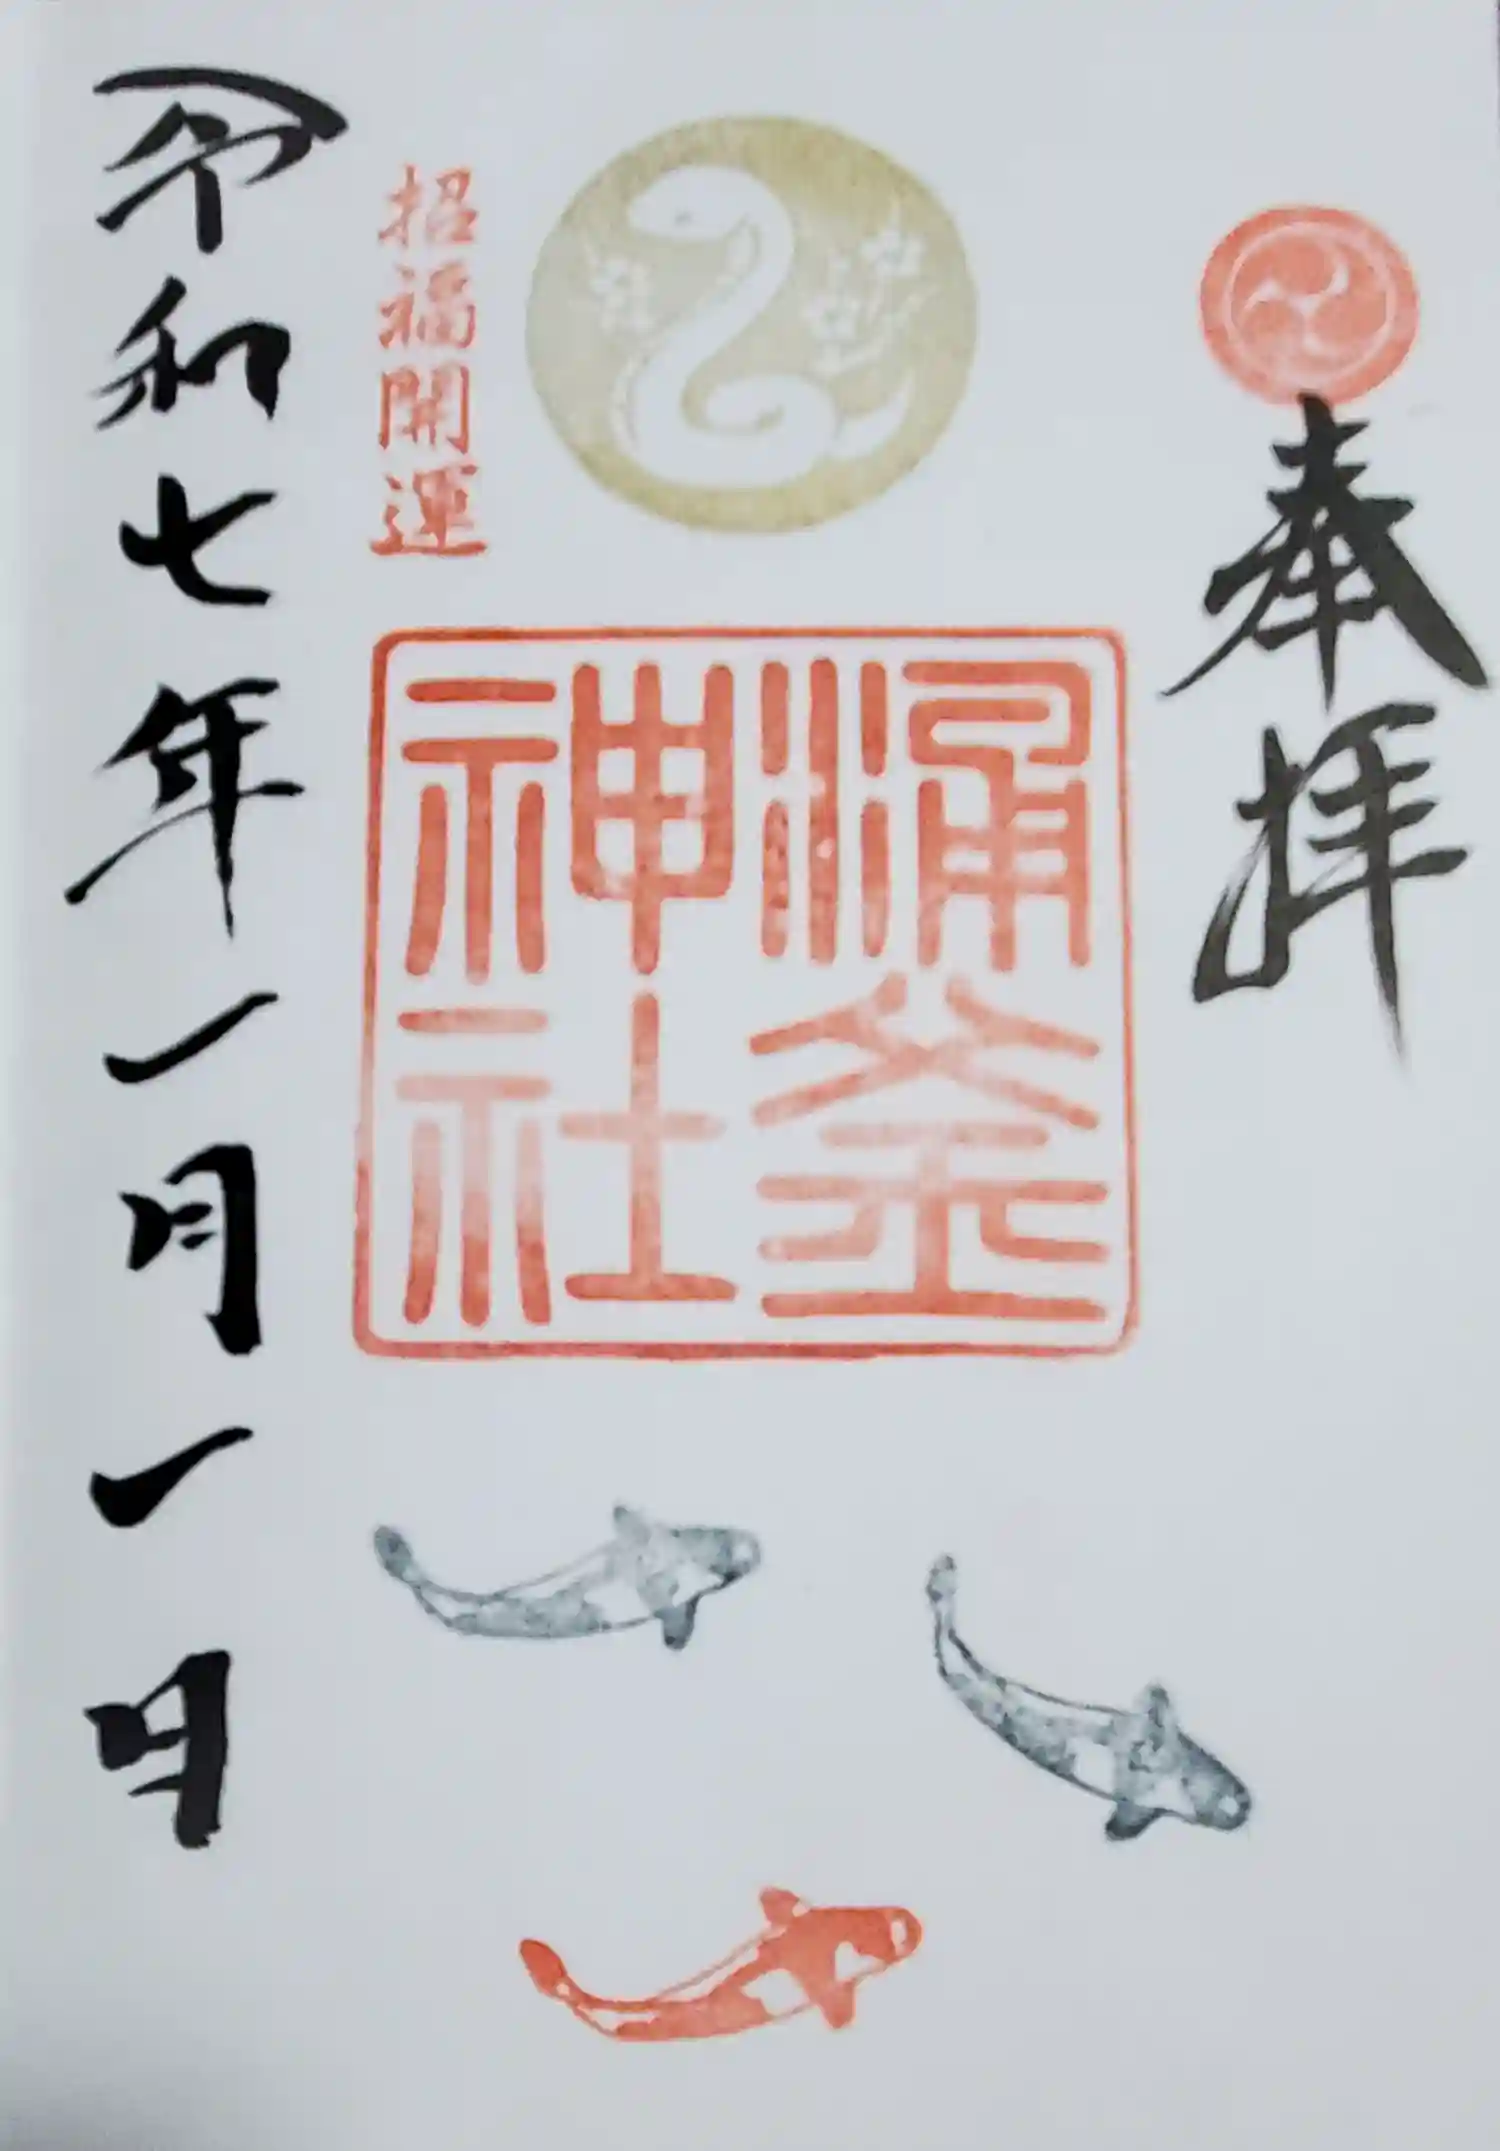 奉拝
湧釜
神社
招福開運
令和七年一月一日